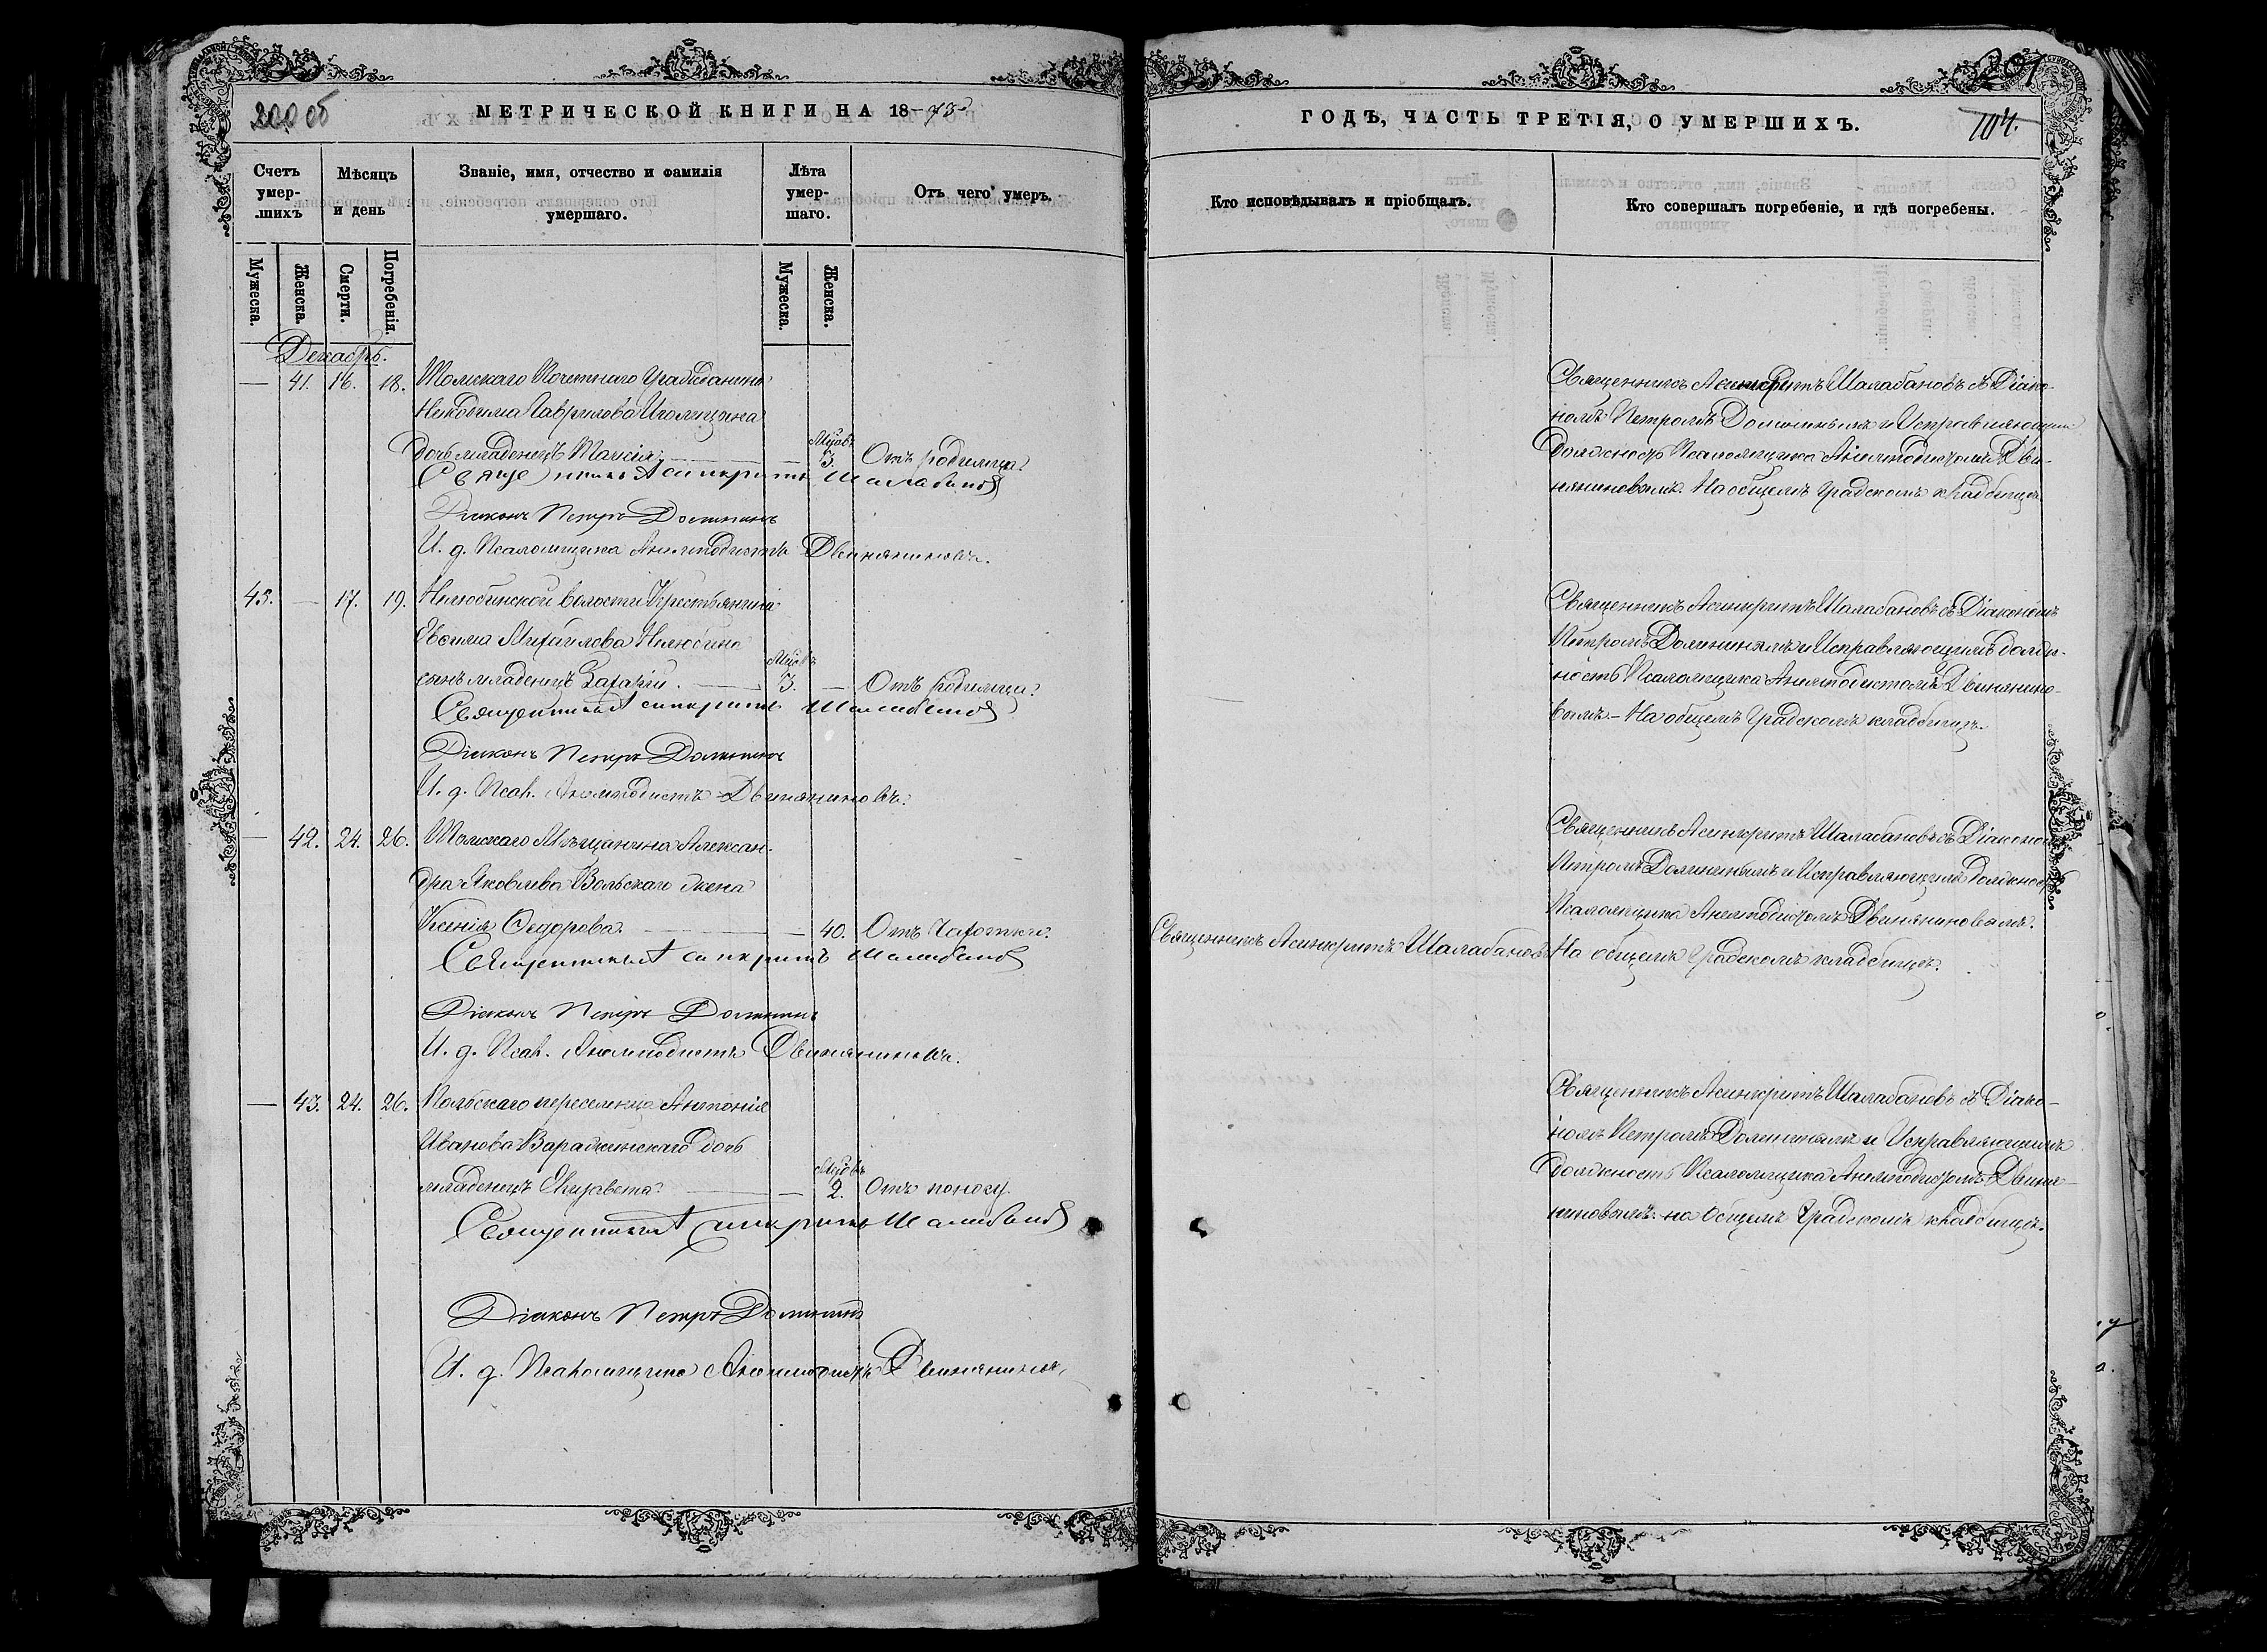 200 об
МЕТРИЧЕСКОЙ КНИГИ НА 18-78
Счетъ умер-шихъ
Мѣсяцъ и день
Званіе, имя, отчество и фамилія умершаго.
Лѣта умер-шаго.
Отъ чего умеръ.
Мужеска.
Женска.
Смерти.
Погребенія.
Мужеска.
Женска.
Декабрь.
— 41. 16. 18. Томскаго Почетнаго Гражданина
Никодима Гаврилова
дочь младенецъ Таисія — Мѣсяц. 3. Отъ родимца.
Священникъ Асинкритъ Шалабановъ
Діаконъ Петръ Долининъ
И. д. Псаломщика Анемподистъ Двиняниновъ.
43. — 17. 19. Нелюбинской волости Крестьянина
Евфима Михайлова Нелюбина
сынъ младенецъ Захарій. — 3. — Отъ родимца.
Священникъ Асинкритъ Шалабановъ
Діаконъ Петръ Долининъ
И. д. Псал. Анемподистъ Двиняниновъ.
— 42. 24. 26. Томскаго Мѣщанина Алексан-
дра Яковлева Вольскаго жена
Ксенія Ѳедорова. — — 40. Отъ Чахотки.
Священникъ Асинкритъ Шалабановъ
Діаконъ Петръ Долининъ
И. д. Псал. Анемподистъ Двиняниновъ.
— 43. 24. 26. Польскаго переселенца Антонія
Иванова Варажинскаго дочь
младенецъ Елизавета. — — 2. Отъ поносу.
Священникъ Асинкритъ Шалабановъ
Діаконъ Петръ Долининъ
И. д. Псаломщика Анемподистъ Двиняниновъ.
201
104.
ГОДЪ, ЧАСТЬ ТРЕТІЯ, О УМЕРШИХЪ.
Кто исповѣдывалъ и пріобщалъ.
Кто совершалъ погребеніе, и гдѣ погребены.
Священникъ Асинкритъ Шалабановъ съ Діако-
номъ Петромъ Долининымъ и Исправляющим
должность Псаломщика Анемподистомъ Дви-
няниновымъ. На общемъ Градскомъ кладбищѣ
Священникъ Асинкритъ Шалабановъ съ Діакономъ
Петромъ Долининымъ и Исправляющимъ долж-
ность Псаломщика Анемподистомъ Двинянино-
вымъ.- На общемъ Градскомъ кладбищѣ.
Священникъ Асинкритъ Шалабановъ съ Діаконо
Петромъ Долининымъ и Исправляющимъ должность
Псаломщика Анемподистомъ Двиняниновымъ.
Священникъ Асинкритъ Шалабановъ
На общемъ Градскомъ кладбищѣ.
Священникъ Асинкритъ Шалабановъ съ Діако-
номъ Петромъ Долининымъ и Исправляющимъ
должность Псаломщика Анемподистомъ Двиня-
ниновымъ. на Общемъ Градскомъ кладбищѣ.